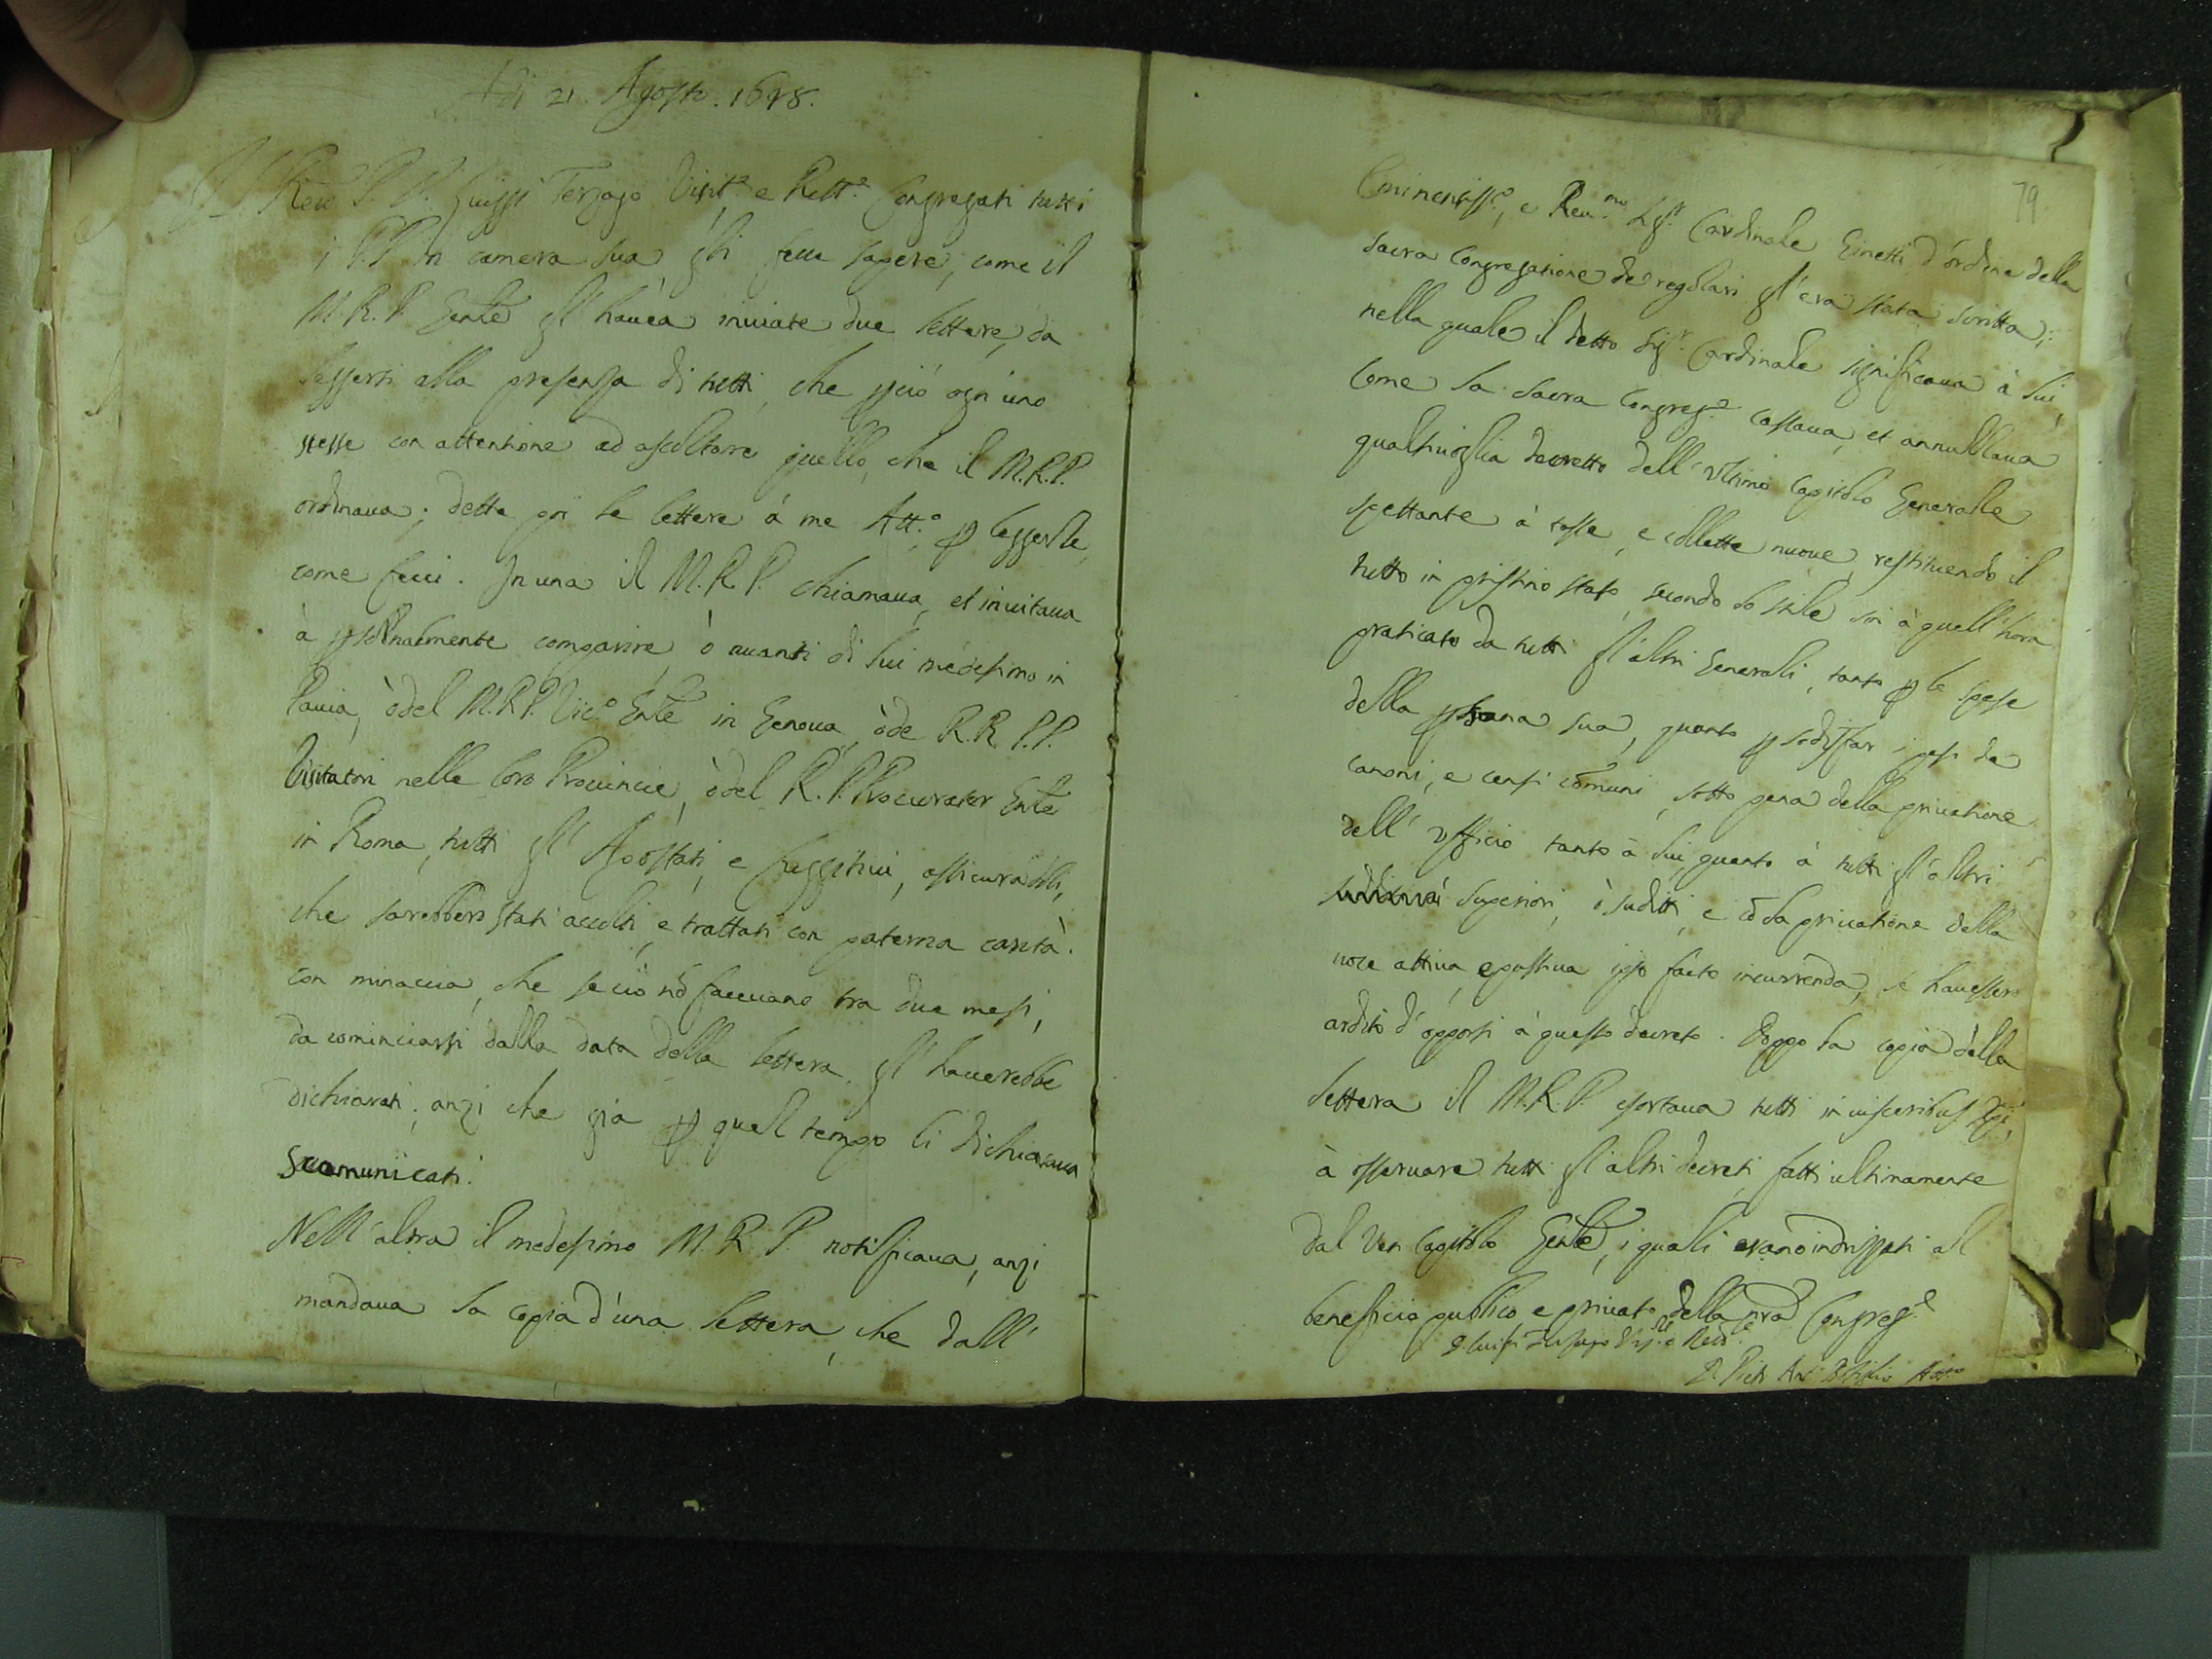 Adi 21. Agosto. 1648.
Il Rdo P. D. Luiggi Terzago Visit.e e Rett.e Congregati tutti
i P.P. in camera sua gli fece sapere, come il
M. R. P. Gnle gl' hauea inuiate due lettere, da
leggersi alla presenza di tutti, che perciò ogn' uno
stesse con attentione ad ascoltare quello, che il M.R.P.
ordinaua; dette poi le lettere à me Att.o p leggerle,
come feci. In una il M. R. P. chiamaua, et inuitaua
à psonalmente comparire, ò auanti di lui medesimo in
Pauia, ò del M.R.P. Vic.o Gnle in Genoua, ò de R.R. P.P.
Visitatori nelle loro Prouincie, ò del R. P. Procurator Gnle
in Roma, tutti gl' Apostati, e fuggitiui, assicurādoli,
che sarebbero stati accolti, e trattati con paterna carità.
con minaccia, che se ciò nō faceuano tra due mesi,
da cominciarsi dalla data della lettera, gl' hauerebbe
dichiarati, anzi che già p quel tempo li dichiaraua
scomunicati.
Nell' altra il medesimo M. R. P. notificaua, anzi
mandaua la copia d' una lettera, che dall'
79
Eminentiss.o, e Reu.mo Sigr. Cardinale Ginetti d' ordine della
sacra Congregatione de regolari gl' era stata scritta;
nella quale il detto Sigr. Cardinale significaua à lui,
come la sacra Congreg.e cassaua, et annullaua
qualsiuoglia decretto dell' vltimo Capitolo Generale
spettante à tasse, e collette nuoue, restituendo il
tutto in pristino stato, secondo lo stile sin à quell' hora
praticato da tutti gl' altri Generali, tanto p le spese
della psona sua, quanto p sodisfar i pesi de
canoni, e censi cōmuni, sotto pena della priuatione
dell' vfficio tanto à lui, quanto à tutti gl' altri
superiori, ò suditti, e cō la priuatione della
uoce attiua, e passiua ipso facto incurrenda, se hauessero
ardito d' opporsi à questo decreto. Doppo la copia della
lettera il M. R. P. esortaua tutti in uisceribus Xpi,
à osseruare tutti gl' altri decreti fatti ultimamente
dal Ven Capitolo Gnle, i quali erano indrizzati al
beneficio publico e priuato della nrā Congreg.e
D. Luigi Terzago Vis.re e Rett.e
D. Pietr Ant. Att.o